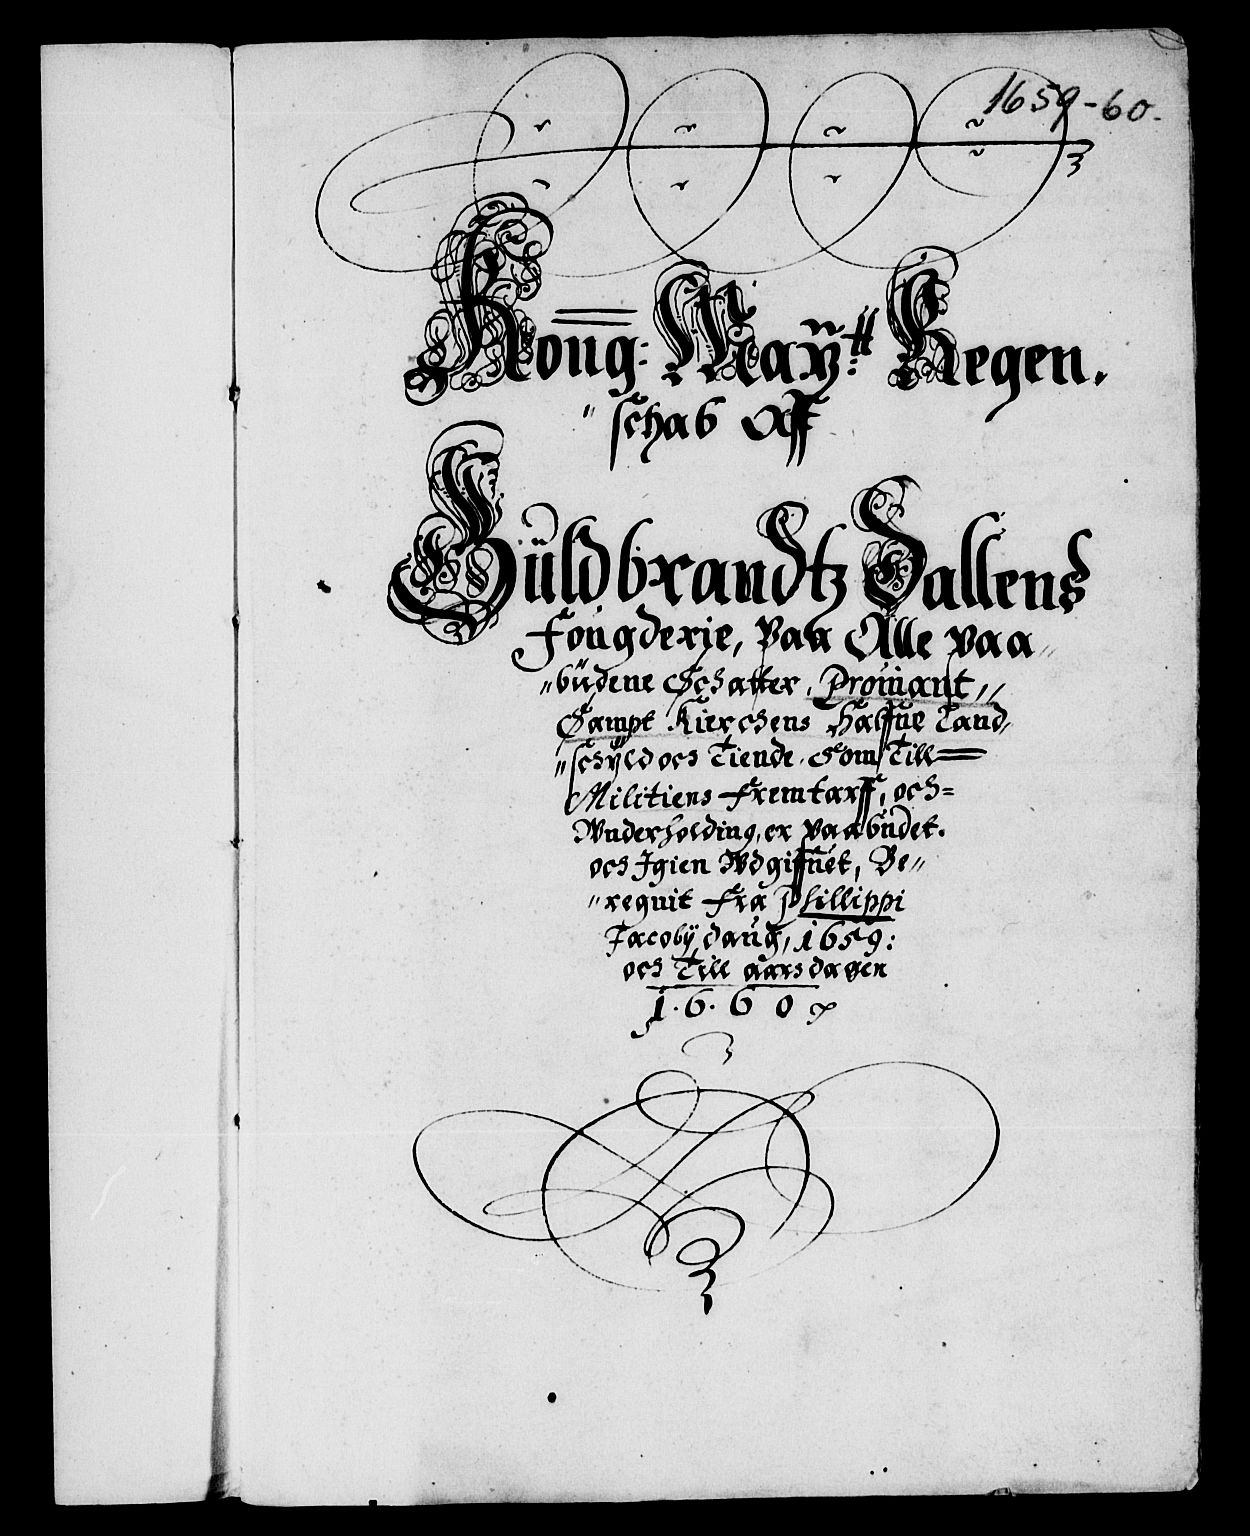 1659-60.
Kong: Maÿ:tt Regen.
"schab Aff
Guldbrandtz Dallens
Fougderie, paa Alle paa"
"budene Schatter, Prouiant"
Sampt Kierchens Halfue Land
"schÿld och Tiende, Som Till
Militiens Fremtarff, och=
Wnderholding, er paabudet.
och Igien Wdgifuet, Be"
"regnit fra Phillippi
Jacobÿ daug, 1659:
och Till aarsdagen
1.6.6 0